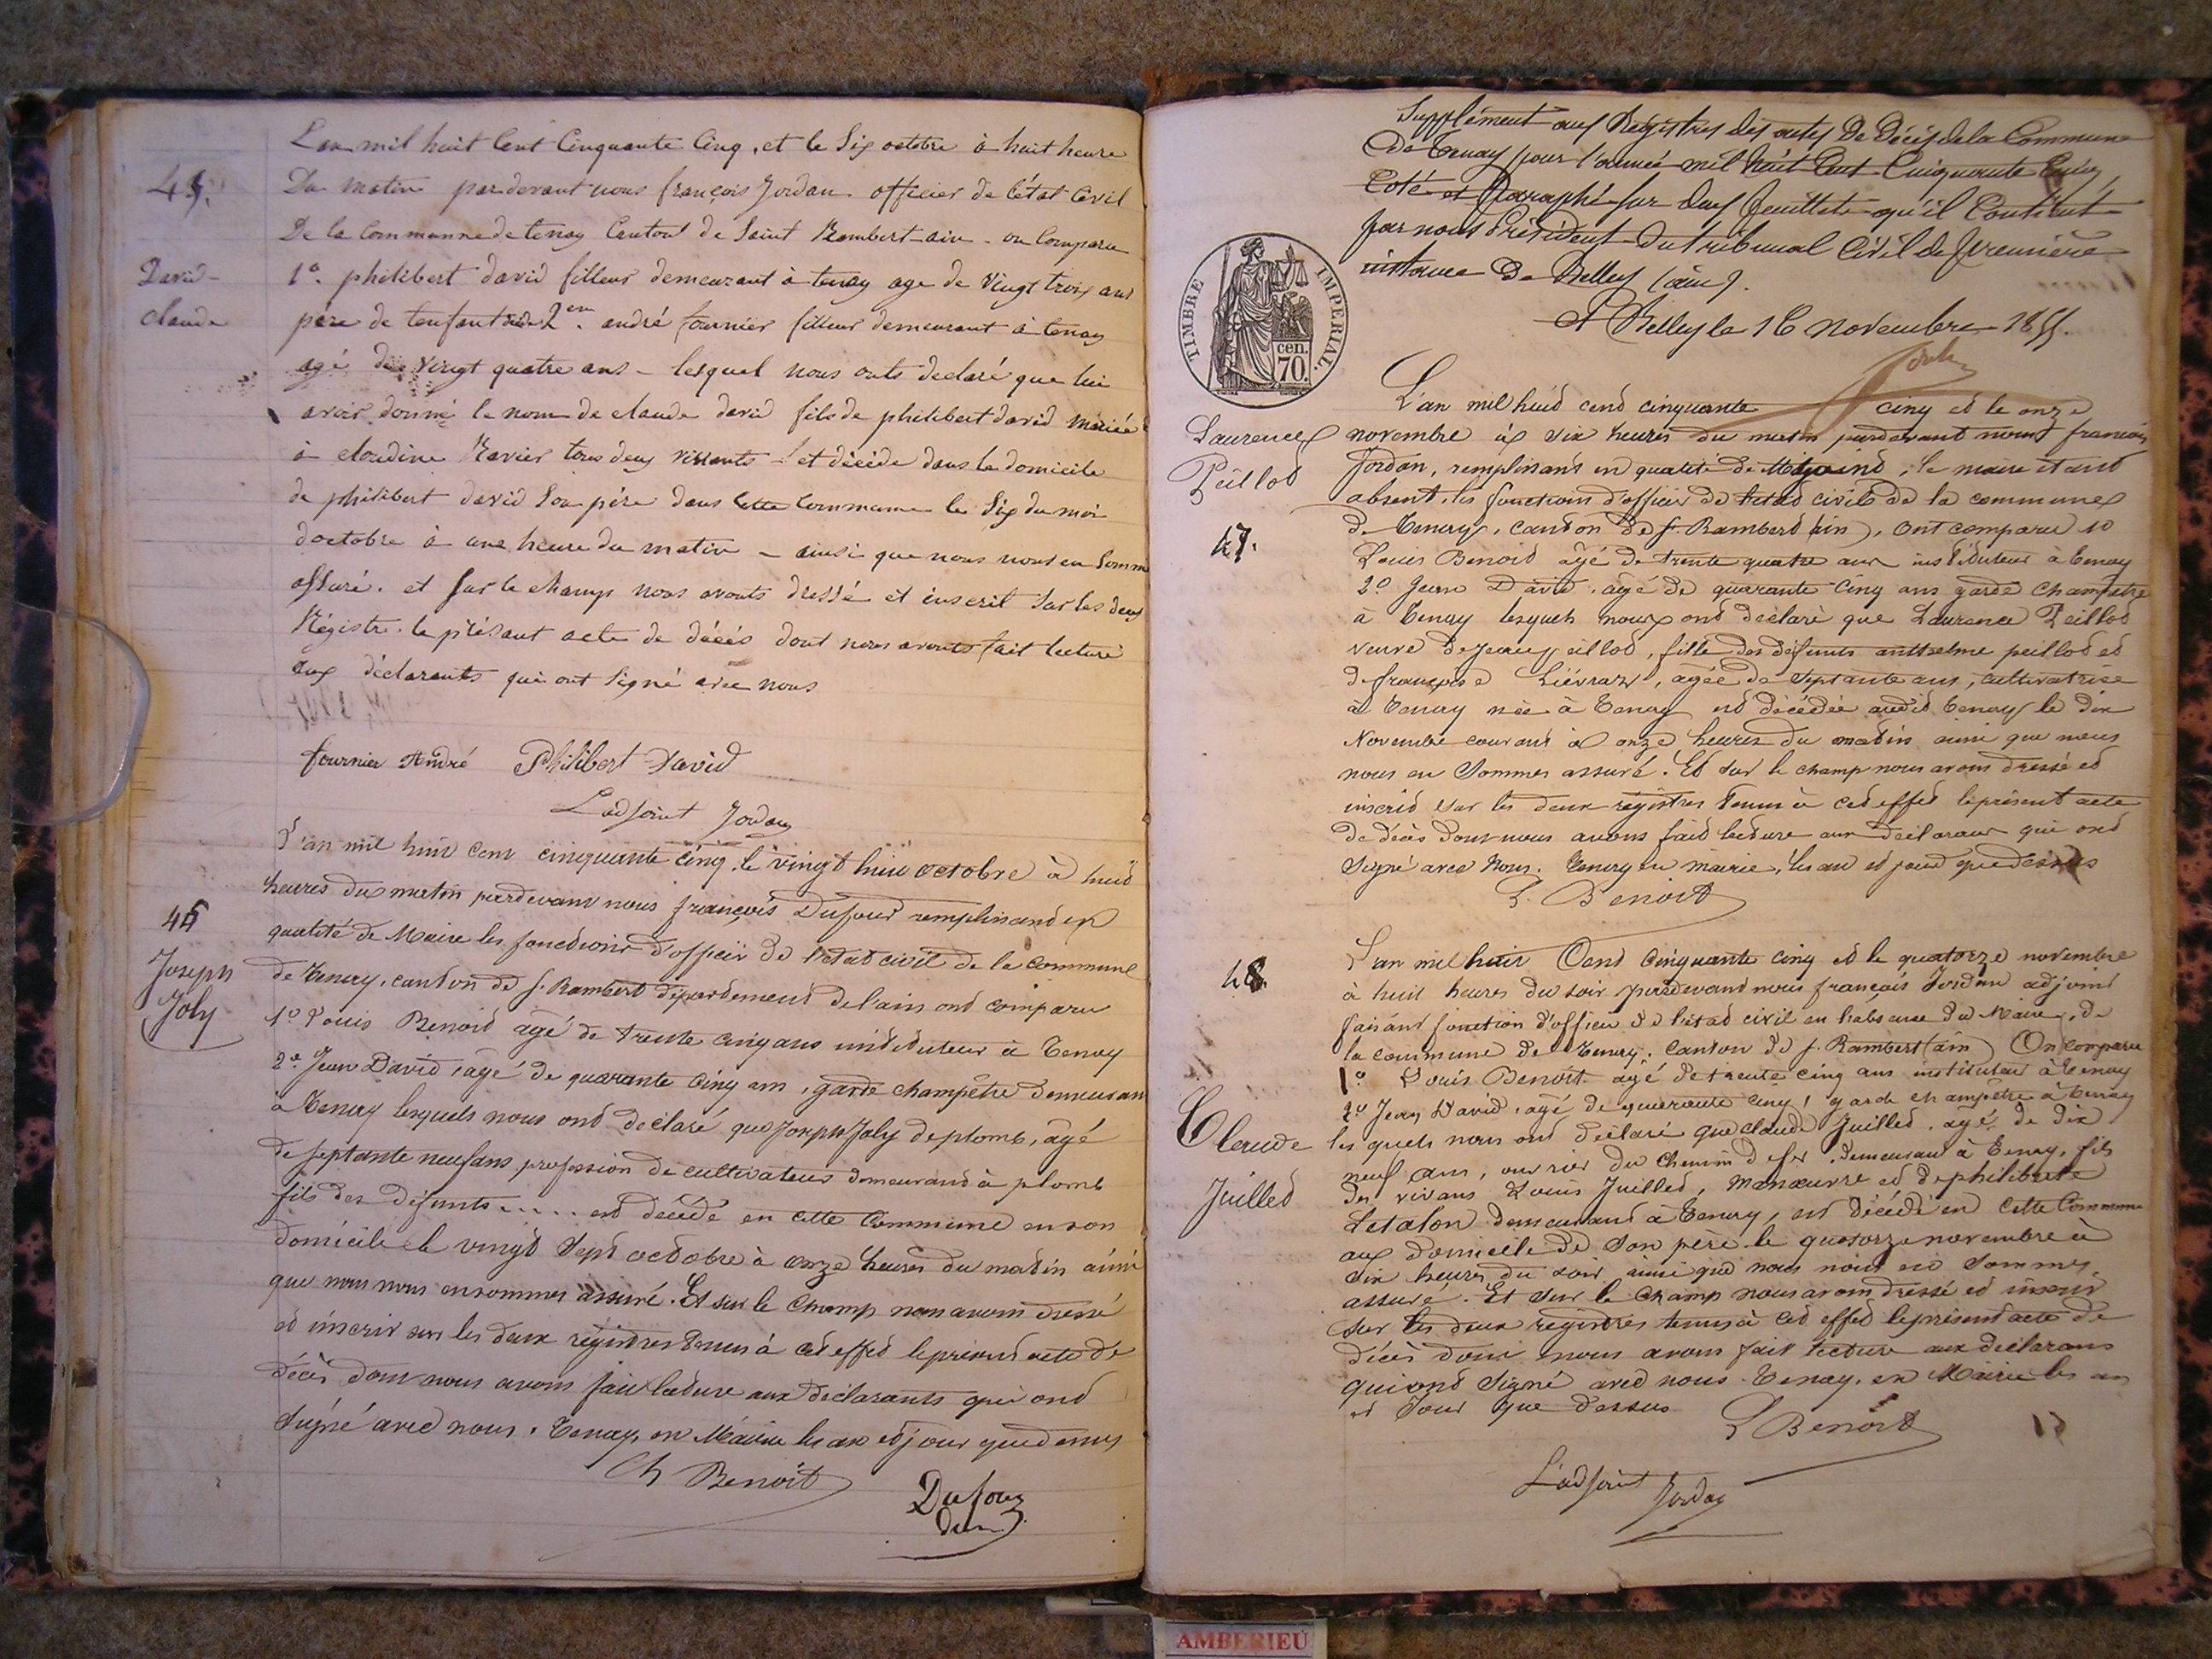 L'an mil huit Cent Cinquante Cinq, et le Six octobre à huit heure
Du matin par devant nous françois Jordan officier de l'état Civil
De la Commune de tenay Canton de Saint Rambert-ain - on Comparu
1° philibert david filleur demeurant à tenay age de Vingt trois ans
père de l'enfant 2em andré fournier filleur demeurant à tenay
agé de Vingt quatre ans - lesquel nous onts declaré que lui
avoir donné le nom de claude david fils de philibert david mariée
à claudine Ravier tous deux vissants et décéde dans le domicile
de philibert david Son père dans cette Commune le Six du moi
doctobre à une heure du matin - ainsi que nous nous en Somm
assuré. et sur le champ nous avonts dréssé et inscrit sur les deux
Régistre le présant acte de décés dont nous avonts fait lecture
aux déclarants qui ont Signé avec nous
45.
David
claude
fournier André Philibert David
L'adjoint Jordan
L'an mil huit cent cinquante cinq, le vingt huit octobre à huit
heures du matin pardevant nous françois Dufour remplissand en
qualité de Maire les fonctions d'officir de l'état civil de la commune
de Tenay, canton de S. Rambert département de l'ain ond comparu
1° Louis Benoid agé de trente cinq ans instituteur à Tenay
2° Jean David, agé de quarante cinq ans, garde champêtre demeurant
à Tenay lesquels nous ond déclaré que Joseph Joly de plomb, agé
de septante neuf ans, profession de cultivateur demeurand à plomb
fils des défunts ..... est décédé en cette Commune en son
domicile le vingt Sept octobre à onze heures du matin ainsi
que nous nous en sommes assuré. Et sur le champ nous avons dressé
et inscrit sur les deux régistres tenus à cet effed le présend acte de
décès dont nous avons fait lecture aux déclarants qui ond
Signé avec nous. Tenay, en Mairie les an et jour que dessus
46
Joseph
Joly
Benoit
Dufour
Supplément aux Régistres des actes De Décès de la Commune
De Tenay pour l'année mil huit Cent Cinquante Cinq,
Coté et Paraphé sur deux feuillets qu'il Contient
par nous Président du tribunal Civil de première
instance De Belley (ain).
A Belley le 16 Novembre 1855.
TIMBRE IMPERIAL.
cen.
70.
L'an mil huid cend cinquante cinq ed le onze
novembre à six heures du matin pardevant nous françois
Jordan, remplissant en qualité de adjoind, le maire étant
absent, les fonctions d'officier de l'état civil de la commune
de Tenay, canton de S. Rambert (ain), ont comparu 1°
Louis Benoid agé de trente quatre ans instituteur à Tenay
2° Jean David, agé de quarante cinq ans garde champêtre
à Tenay lesquels nous ond déclaré que Laurence Peillod
veuve de Jean peillod, fille des défunts antthelme peillod ed
de françoise Liévraz, agée de septante ans, cultivatrice
à Tenay née à Tenay est décédée audit Tenay le dix
Novembre courant à onze heures du matin ainsi que nous
nous en Sommes assuré. Et sur le champ nous avons dressé ed
inscrid sur les deux régistres tenus à cet effet le présent acte
de décès dont nous avons faid lecture aux déclarans qui ond
Signé avec Nous. Tenay en mairie, les an et jour que dessus
Laurence
Peillod
47.
L. Benoit
L'an mil huit Cend Cinquante cinq et le quatorze novembre
à huit heures du soir pardevand nous françois Jordan adjoint
faisant fonction d'officier de l'état civil en l'absence du Maire, de
la commune de Tenay, Canton de S. Rambert (ain) On comparu
1° Louis Benoit agé de trente cinq ans instituteur à Tenay
2° Jean David, agé de quarante cinq, garde champêtre à Tenay
les quels nous ond déclaré que claude Juilled, agé de dix
neuf ans, ouvrier du chemin de fer, demeurant à Tenay, fils
des vivans Louis Juilled, manœuvre ed de philiberte
Letalon demeurand à Tenay, est décédé en cette Commune
aux domicile de Son père le quatorze novembre à
six heures du soir ainsi que nous nous en Sommes
assuré. Et Sur le Champ nous avons dressé ed inscrit
sur les deux régistres tenus à ced effed le présent acte de
décès dont nous avons fait lecture aux déclarans
qui ond Signé avec nous. Tenay, en Mairie les an
et Jour que dessus
48.
Claude
Juilled
L Benoit
L'adjoint Jordan
AMBERIEU